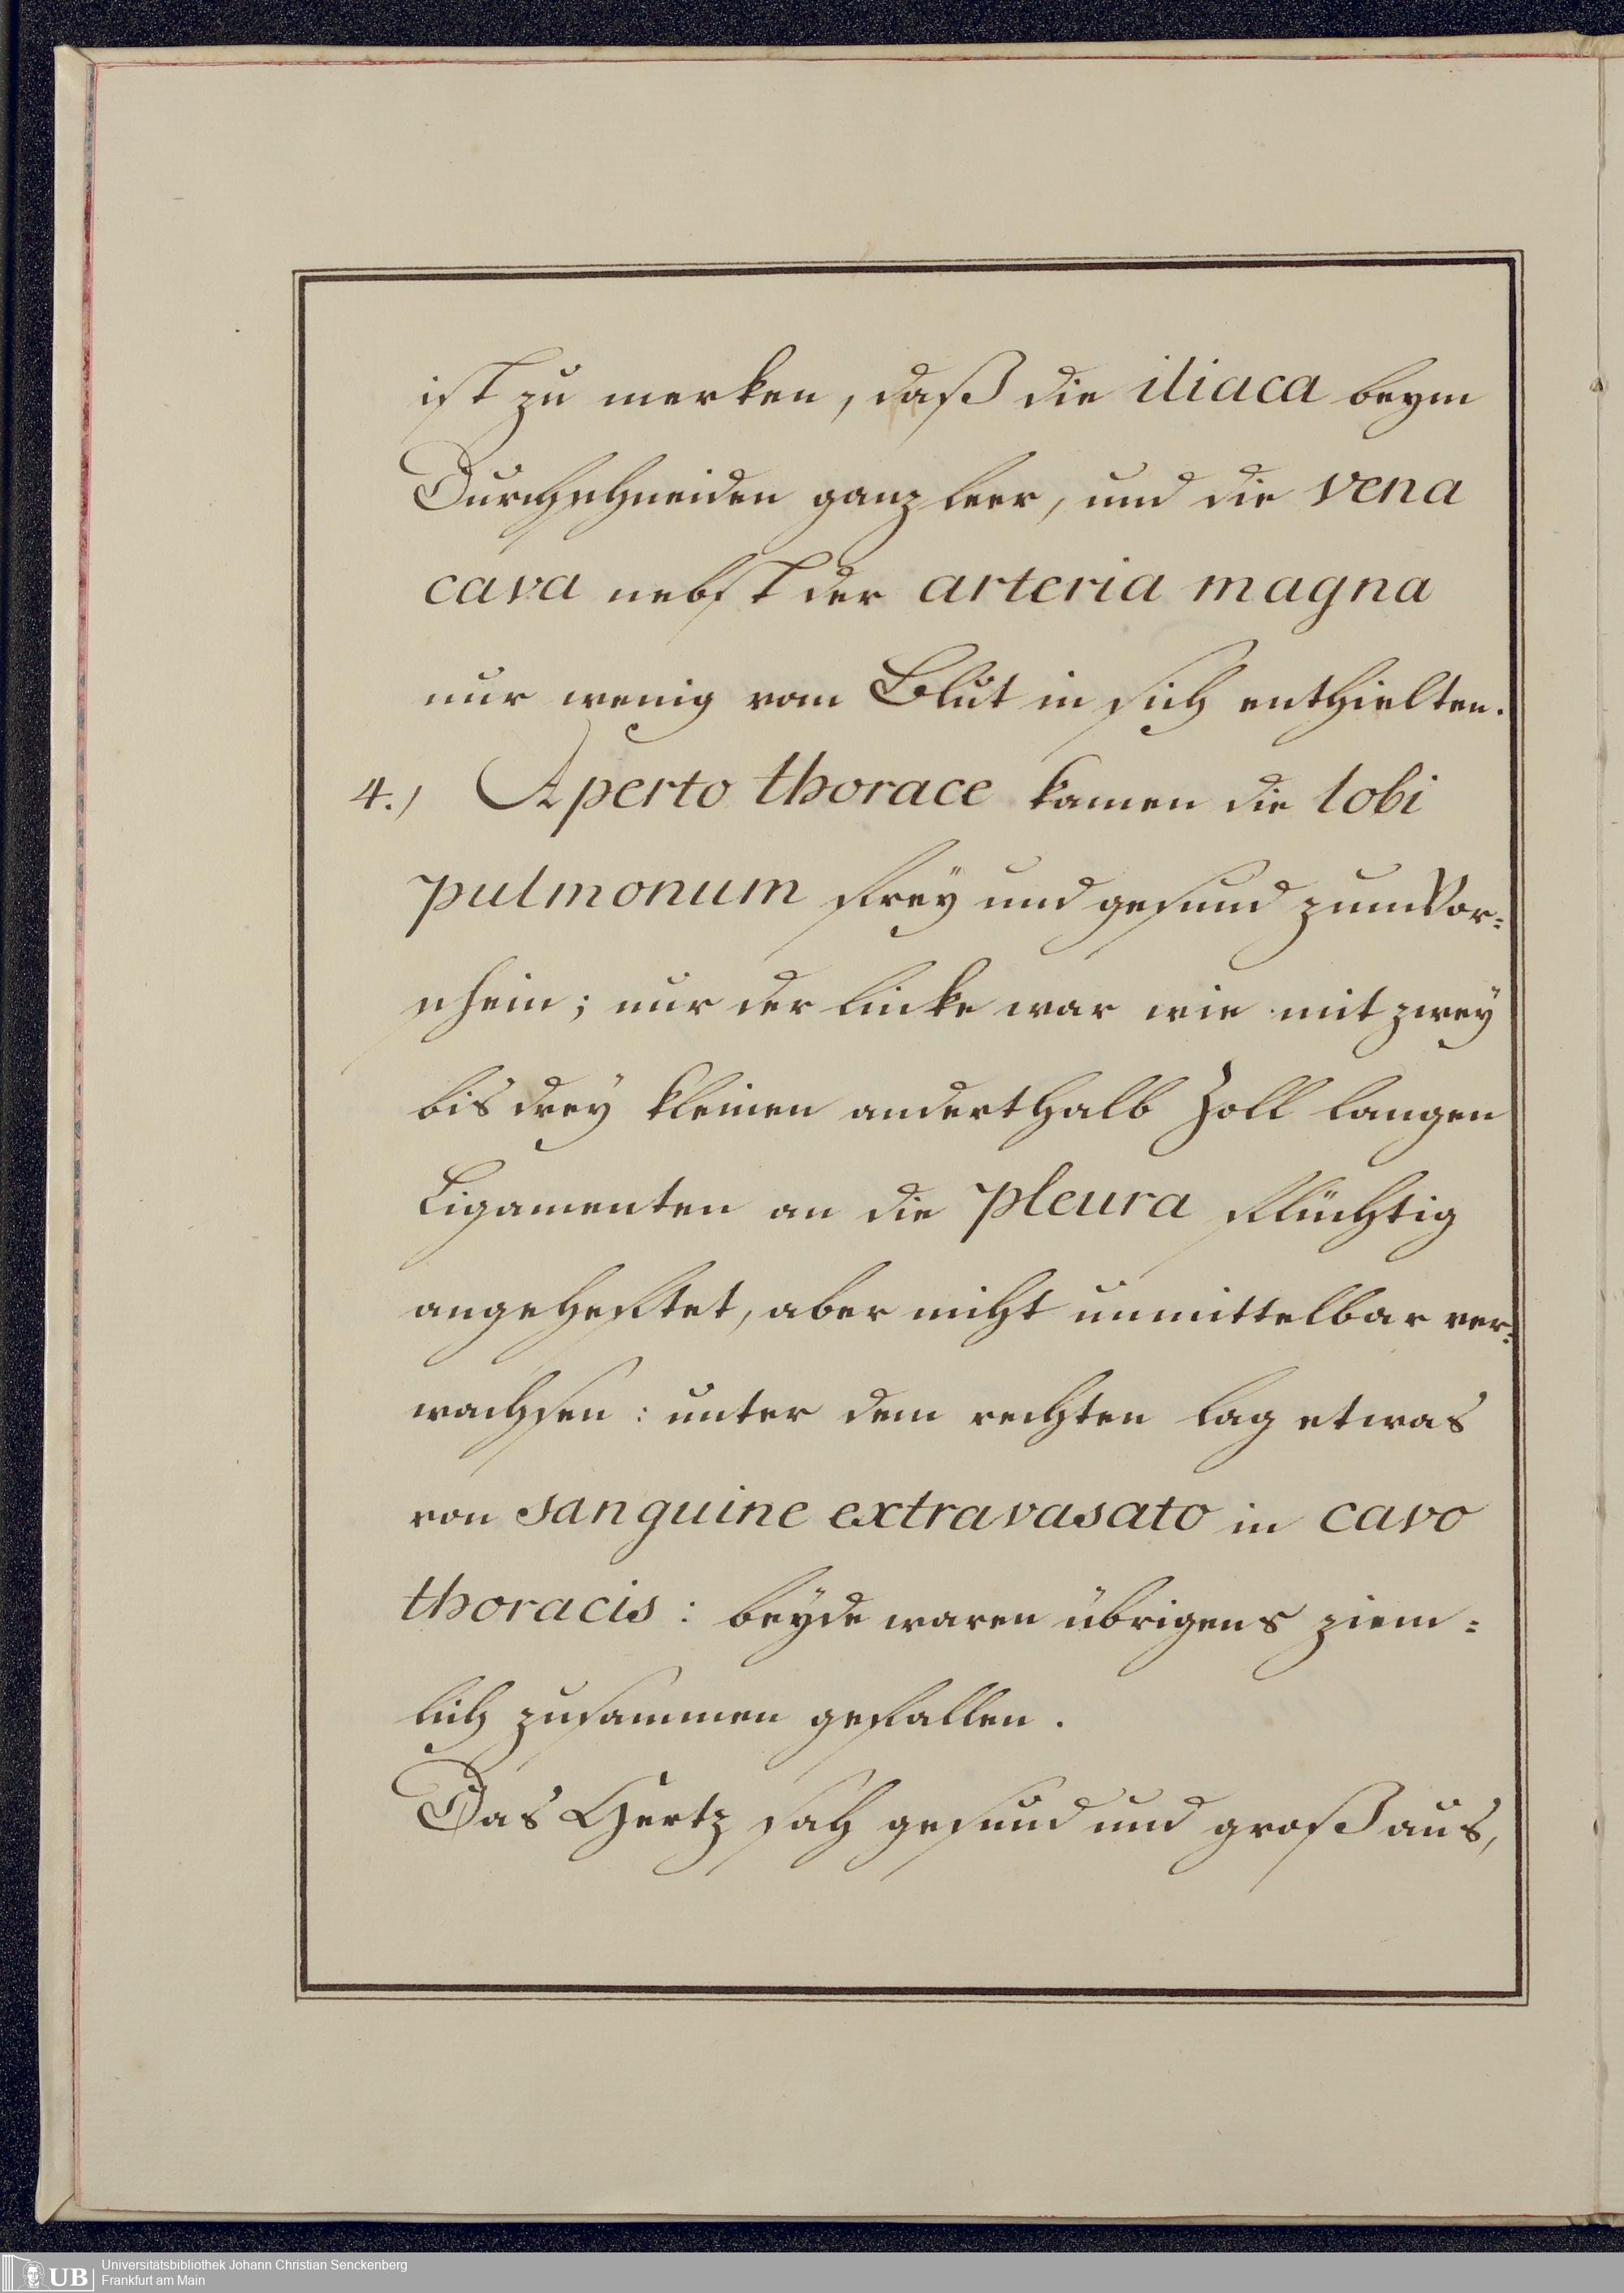 ist zu merken, daß die iliaca beym
Durchschneiden ganz leer, und die vena
cava nebst der arteria magna
nur wenig vom Blut in sich enthielten.
4.) Aperto thorace kamen die lobi
pulmonum frey und gesund zum Vor=
schein; nur der lincke war wie mit zwey
bis drey kleinen anderthalb Zoll langen
Ligamenten an die pleura flüchtig
angeheftet, aber nicht unmittelbar ver=
wachsen: unter dem rechten lag etwas
von sanguine extravasato in cavo
thoracis: beyde waren übrigens ziem=
lich zusammen gefallen.
Das Hertz sah gesund und groß aus,
UB Universitätsbibliothek Johann Christian Senckenberg
Frankfurt am Main